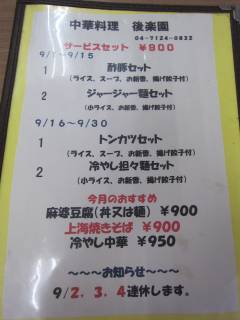 中華料理 後楽園
04-9124-0833
サービスセット ¥900
9/1~9/15
1 酢豚セット
(ライス、スープ、お新香、揚げ餃子付)
2 ジャージャー麺セット
(小ライス、お新香、揚げ餃子付)
9/16~9/30
1 トンカツセット
(ライス、スープ、お新香、揚げ餃子付)
2 冷やし担々麺セット
(小ライス、お新香、揚げ餃子付)
今月のおすすめ
麻婆豆腐(丼又は麺) ¥900
上海焼きそば ¥900
冷やし中華 ¥950
~~~お知らせ~~~
9/2、3、4連休します。